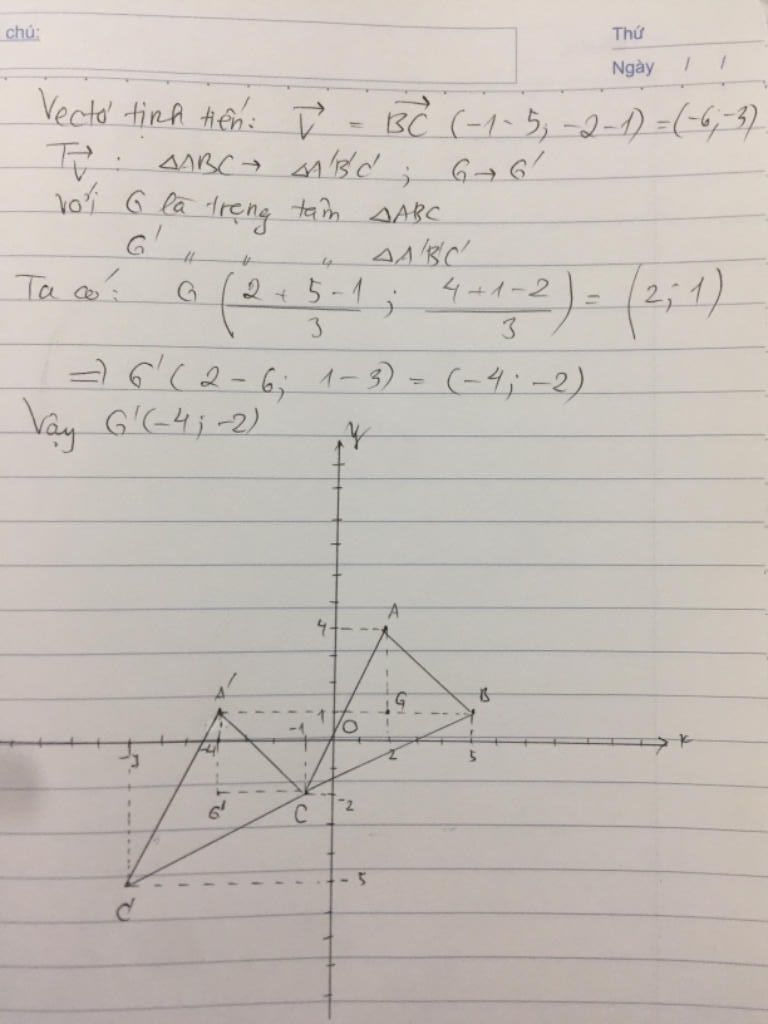 chú:
Thứ
Ngày / /
Vectơ tịnh tiến: V⃗ = BC⃗ (-1-5; -2-1) = (-6; -3)
Tv⃗ : ΔABC → ΔA'B'C' ; G → G'
với G là trọng tâm ΔABC
G' " " " ΔA'B'C'
Ta có: G ( (2+5-1)/3 ; (4+1-2)/3 ) = (2; 1)
=> G' ( 2-6; 1-3) = (-4; -2)
Vậy G'(-4; -2)
y
A
4
A' -1 1 G B
O
-4 2 5 x
G' C -2
-5
C'